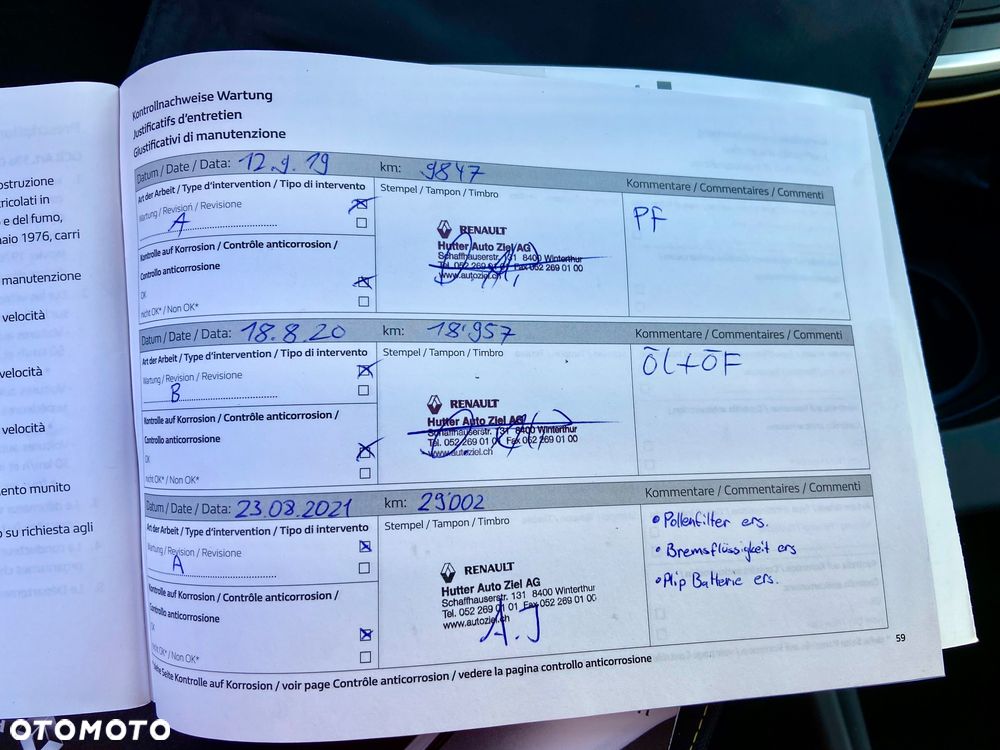 Kontrollnachweise Wartung
Justificatifs d'entretien
Giustificativi di manutenzione
Datum / Date / Data: 12.9.19 km: 9847
Art der Arbeit / Type d'intervention / Tipo di intervento
Stempel / Tampon / Timbro
Kommentare / Commentaires / Commenti
Wartung / Revision / Revisione
A
PF
RENAULT
Hutter Auto Ziel AG
Schaffhauserstr. 131 8400 Winterthur
Tel. 052 269 01 01 Fax 052 269 01 00
www.autoziel.ch
Kontrolle auf Korrosion / Contrôle anticorrosion /
Controllo anticorrosione
OK
nicht OK* / Non OK*
Datum / Date / Data: 18.8.20 km: 18'957
Kommentare / Commentaires / Commenti
Art der Arbeit / Type d'intervention / Tipo di intervento
Stempel / Tampon / Timbro
Wartung / Revision / Revisione
B
ÖL+ÖF
RENAULT
Hutter Auto Ziel AG
Schaffhauserstr. 131 8400 Winterthur
Tel. 052 269 01 Fax 052 269 01 00
www.autoziel.ch
Kontrolle auf Korrosion / Contrôle anticorrosion /
Controllo anticorrosione
OK
nicht OK* / Non OK*
Datum / Date / Data: 23.08.2021 km: 29002
Kommentare / Commentaires / Commenti
Art der Arbeit / Type d'intervention / Tipo di intervento
Stempel / Tampon / Timbro
Wartung / Revision / Revisione
A
• Pollenfilter ers.
• Bremsflüssigkeit ers
• Plip Batterie ers.
RENAULT
Hutter Auto Ziel AG
Schaffhauserstr. 131 8400 Winterthur
Tel. 052 269 01 01 Fax 052 269 01 00
www.autoziel.ch
A.J
Kontrolle auf Korrosion / Contrôle anticorrosion /
Controllo anticorrosione
OK
nicht OK* / Non OK*
*siehe Seite Kontrolle auf Korrosion / voir page Contrôle anticorrosion / vedere la pagina controllo anticorrosione
59
ostruzione
tricolati in
e del fumo,
naio 1976, carri
manutenzione
velocità
velocità
velocità
ento munito
su richiesta agli
OTOMOTO